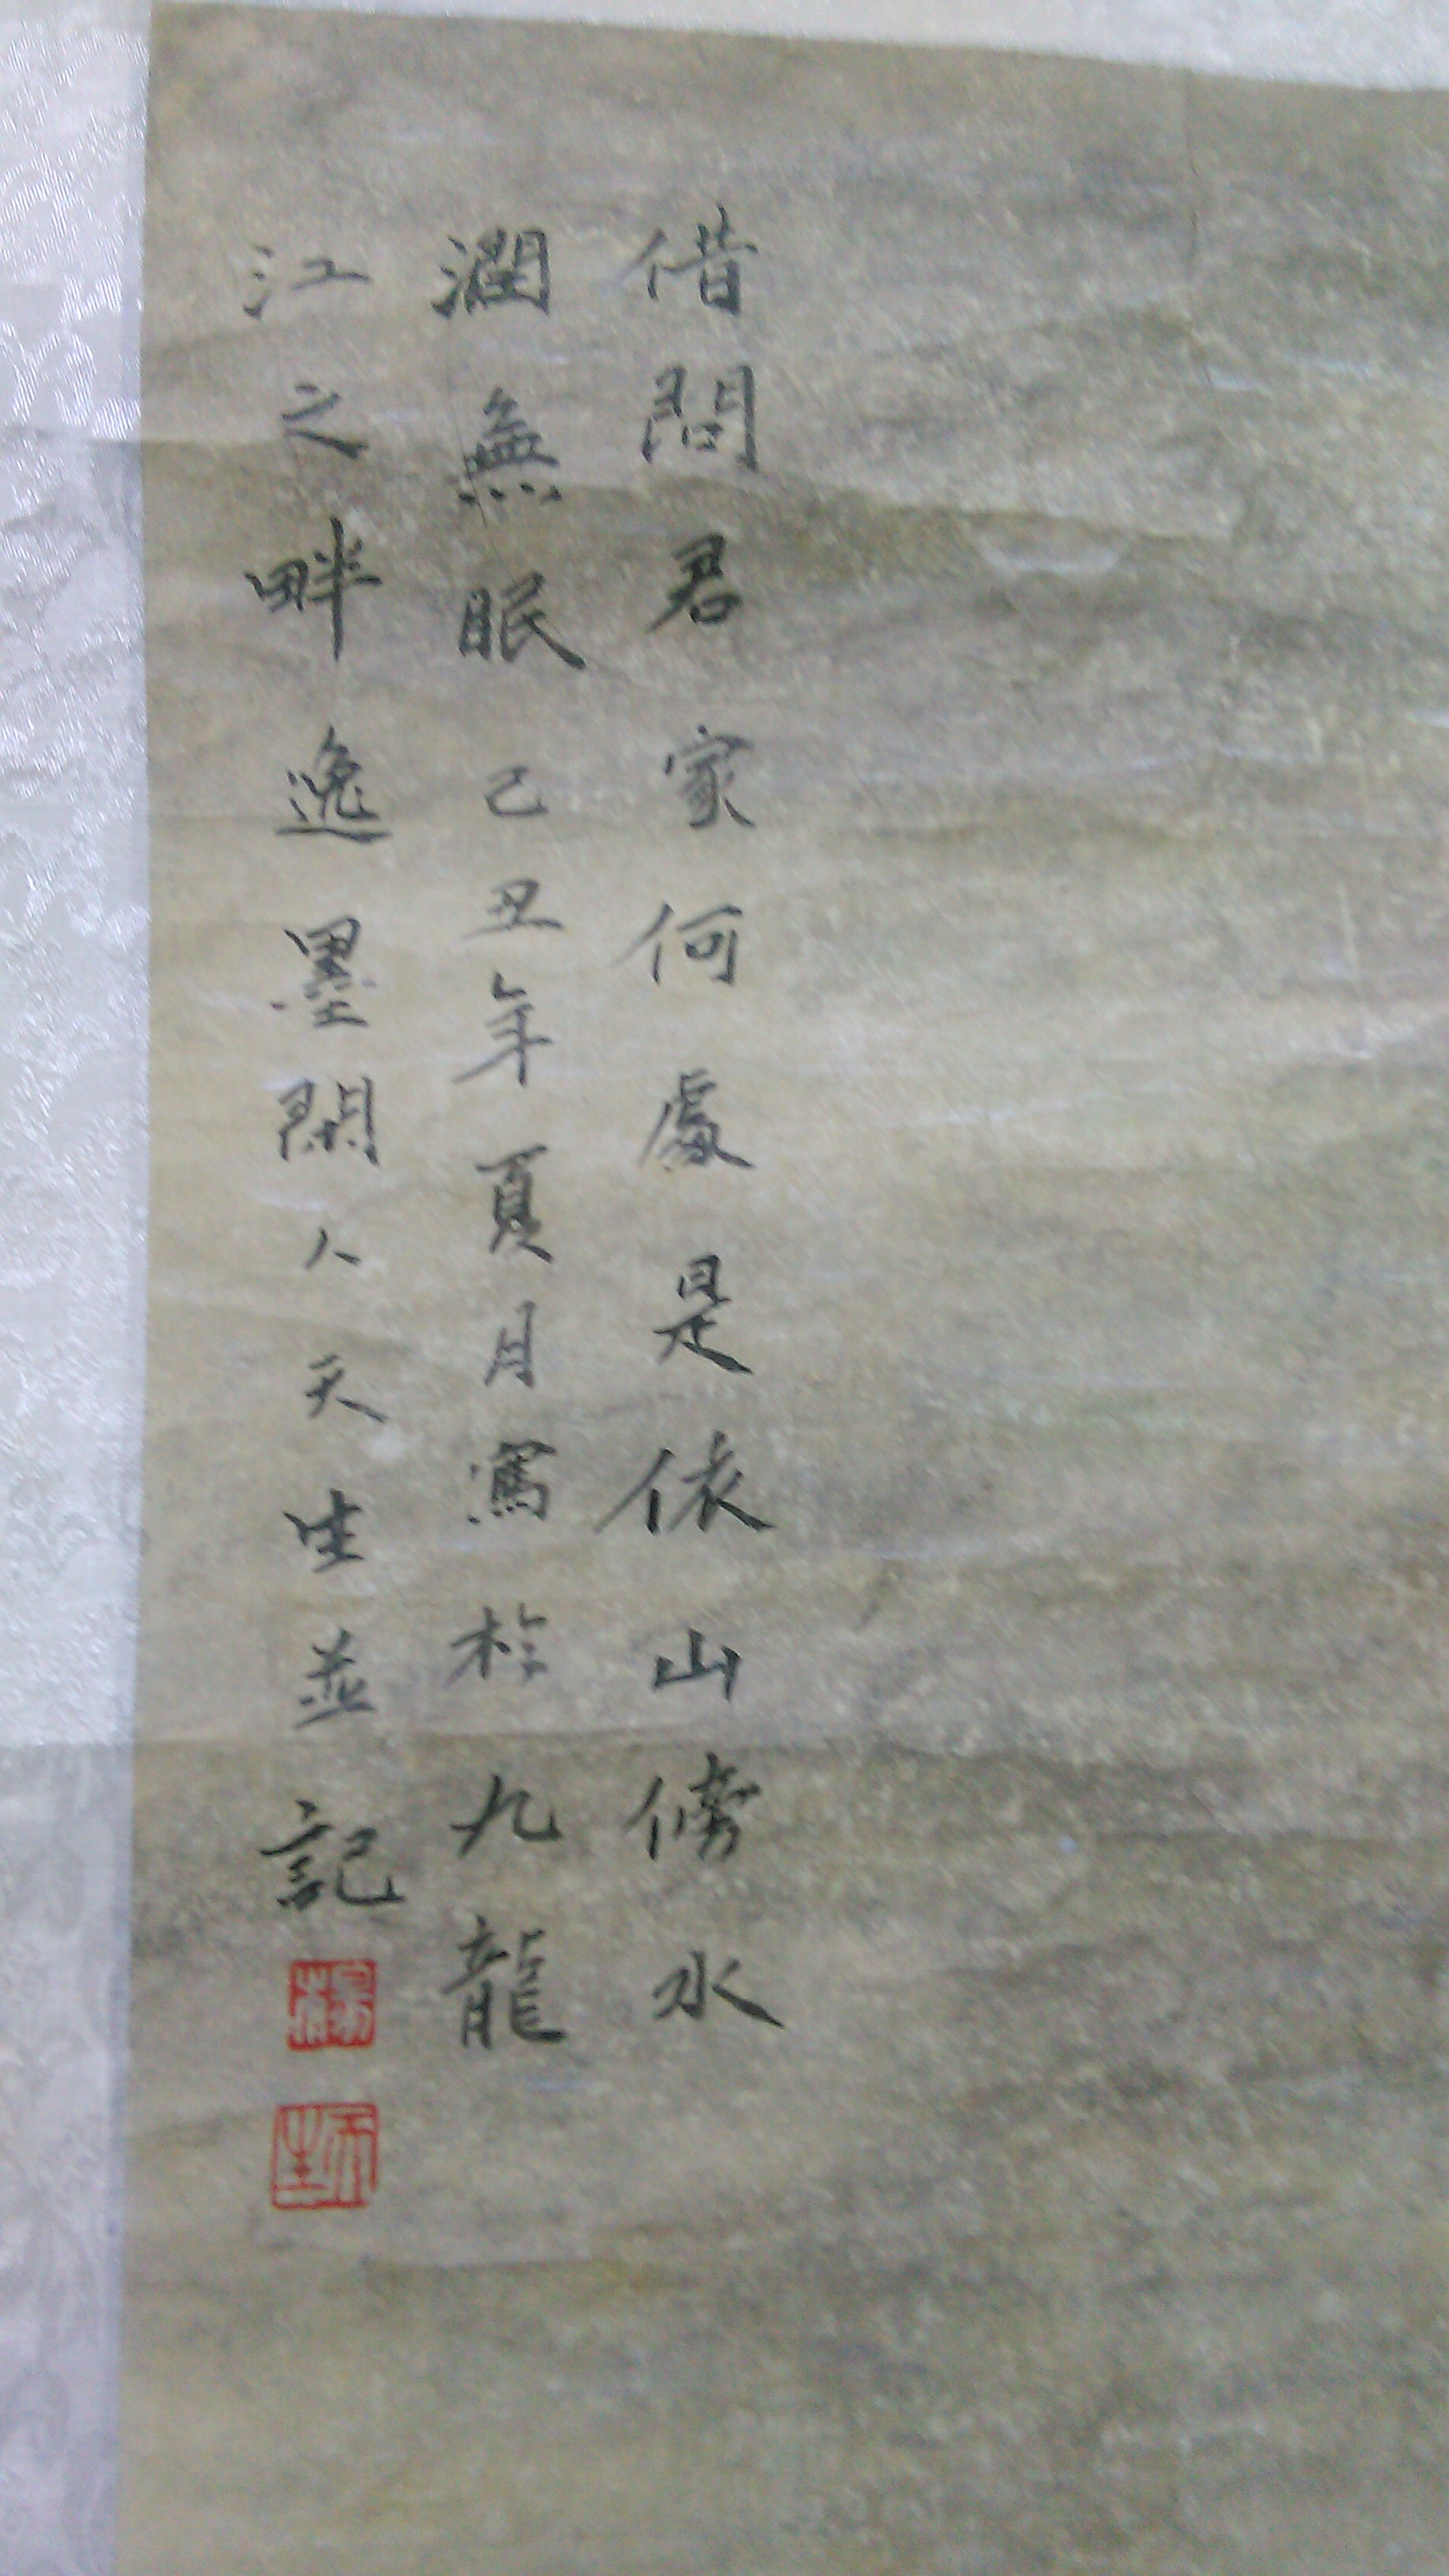 借問君家何處是依山傍水
澗無眠己丑年夏月寫於九龍
江之畔逸墨閑人天生並記
楊
天生